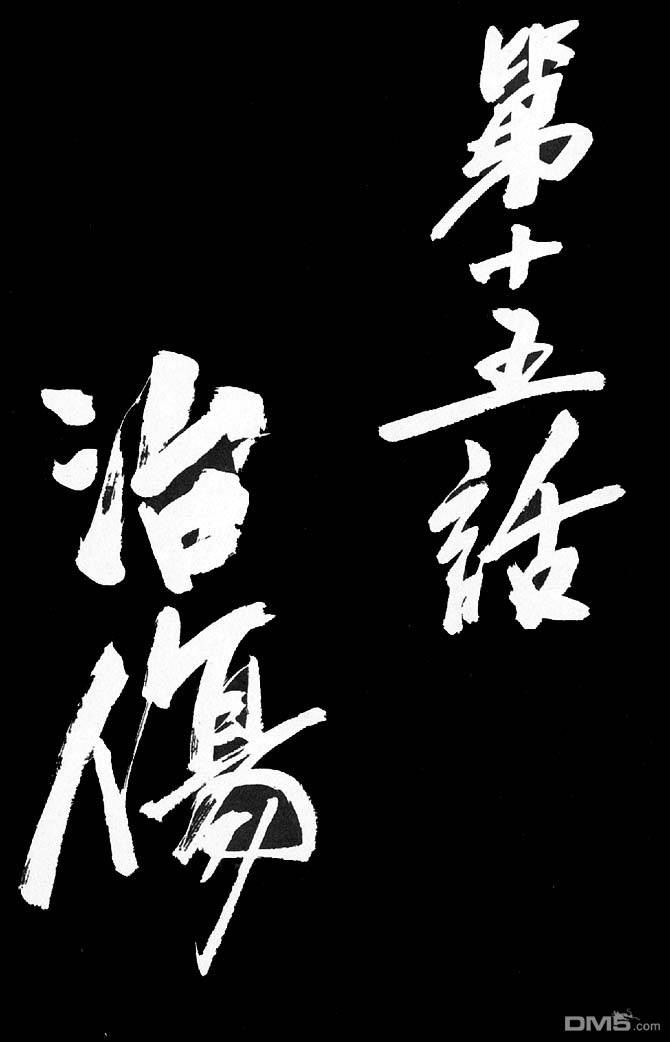 第十五話
治傷
DM5.com